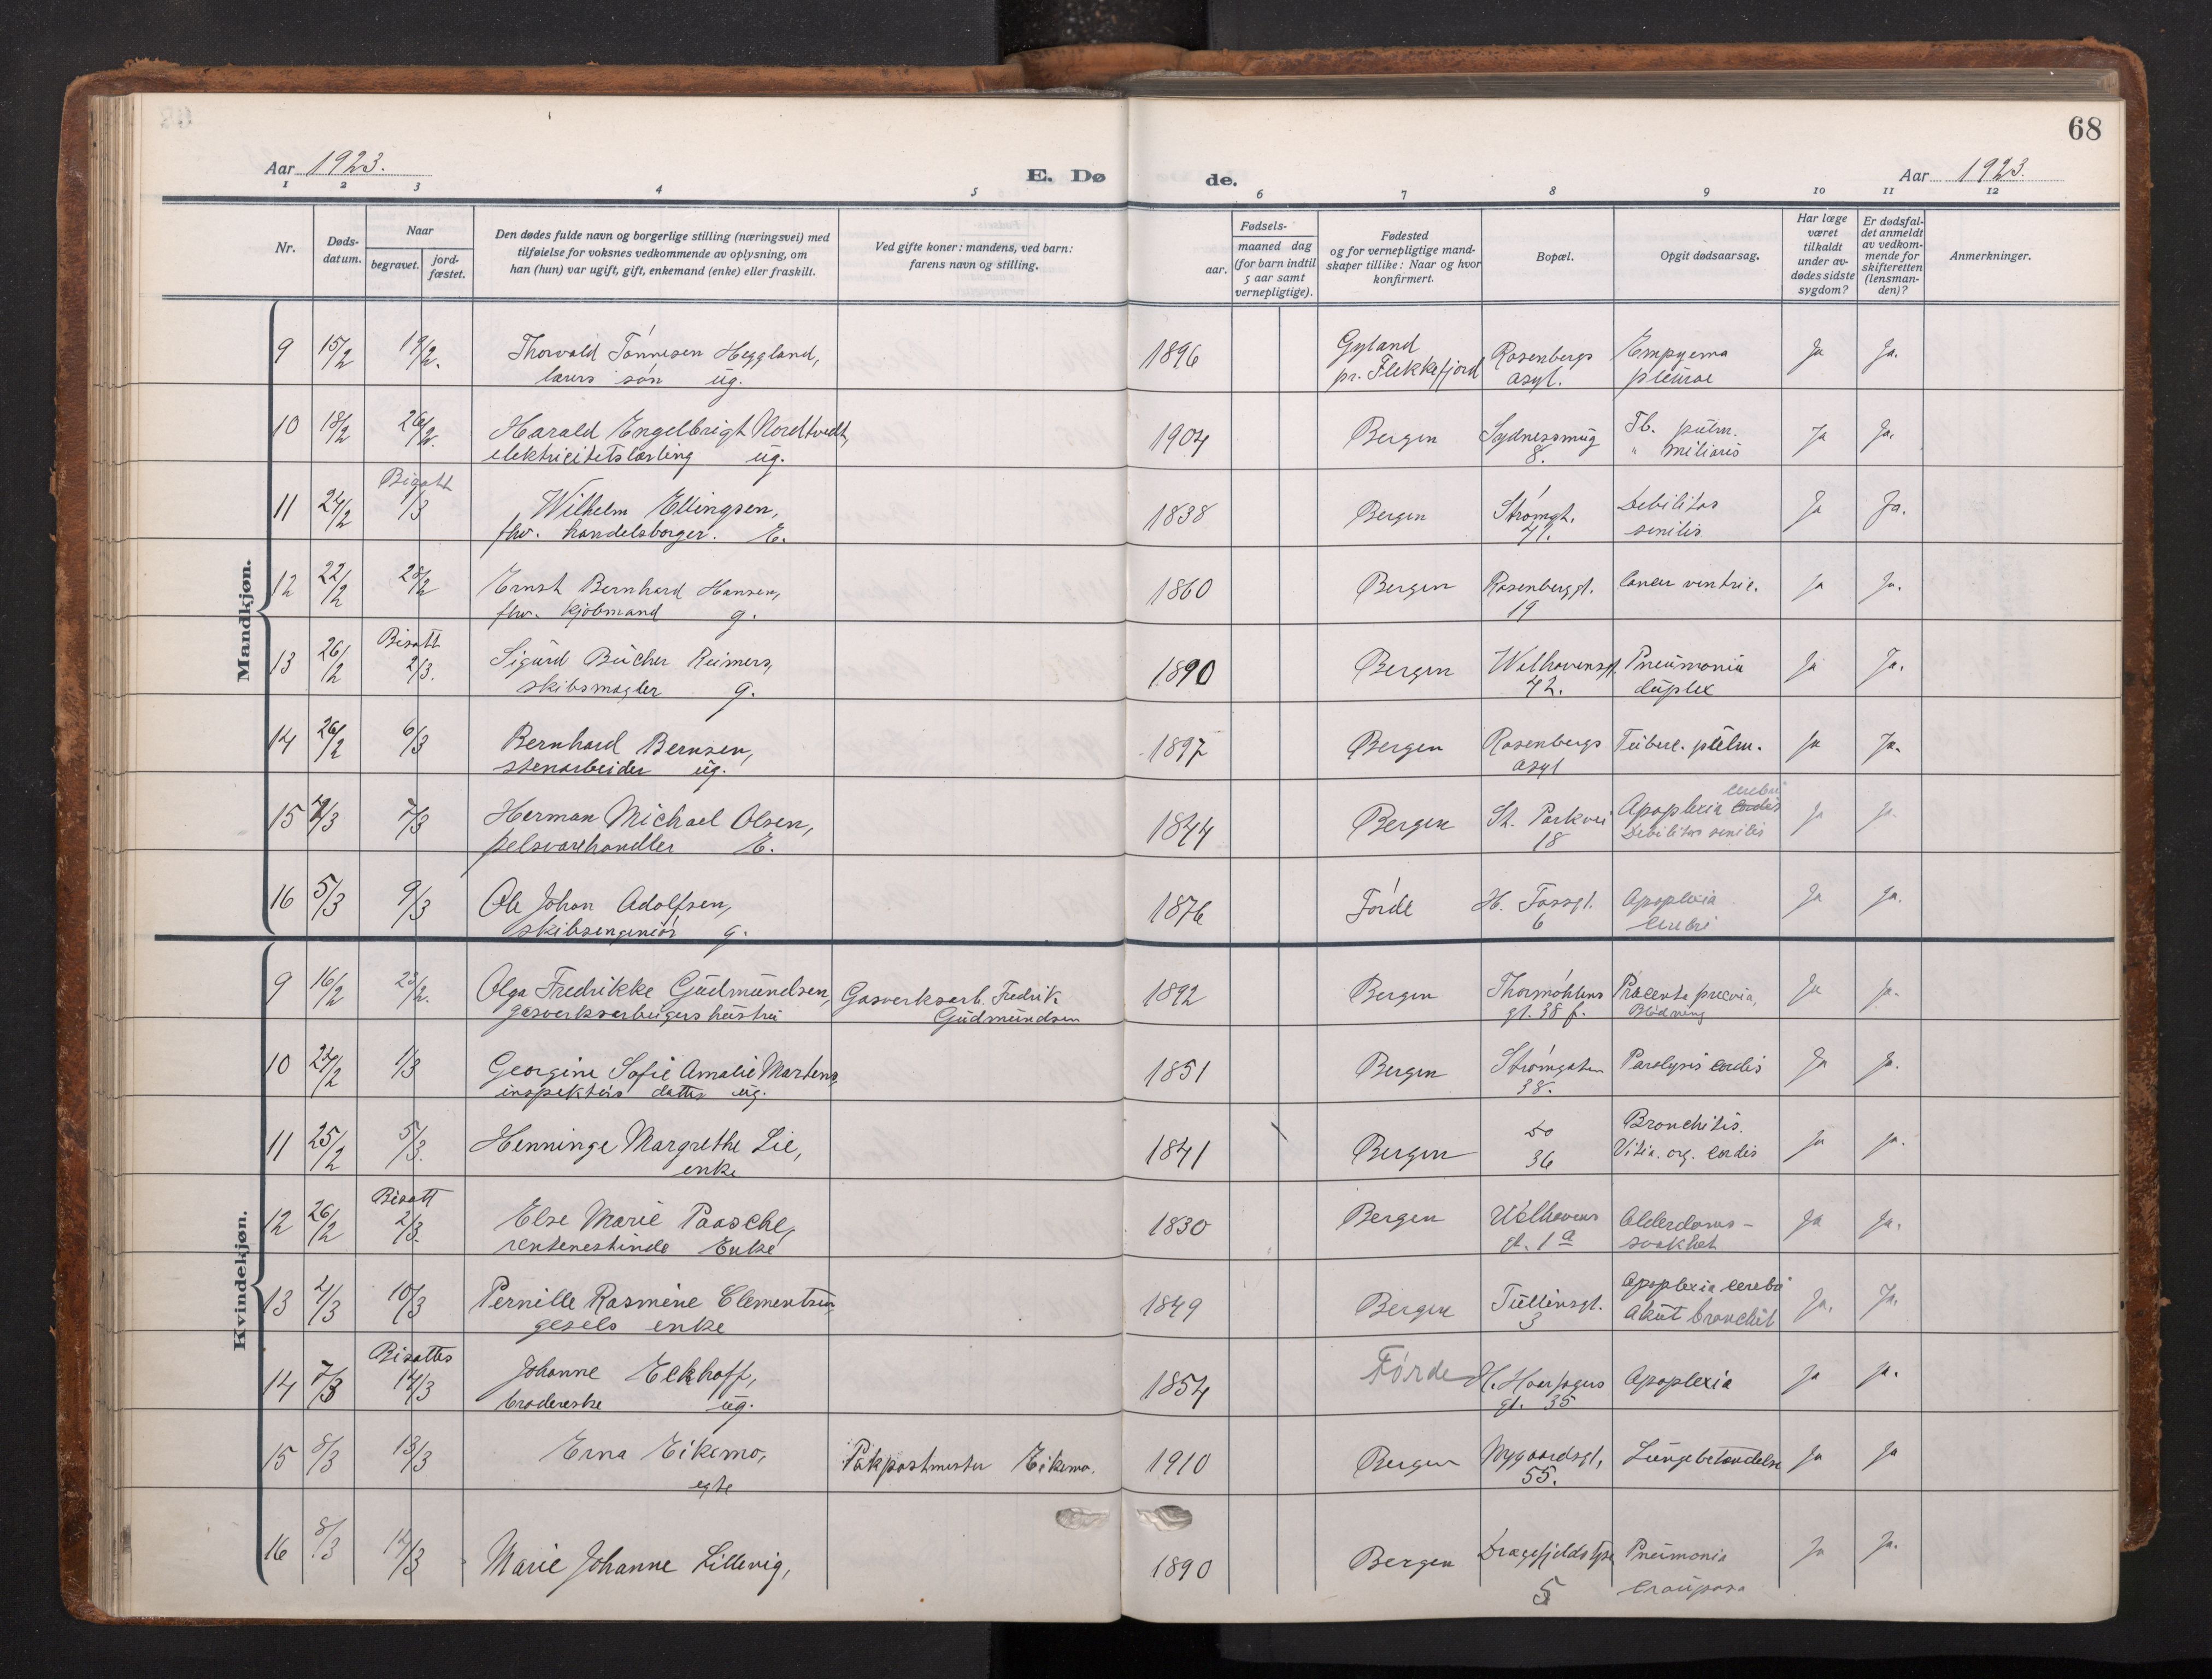 68
Aar 1923.
E. Dø
de.
Aar 1923.
1 2 3 4 5 6 7 8 9 10 11 12
Nr.
Døds-
datum.
Naar
begravet.
jord-
fæstet.
Den dødes fulde navn og borgerlige stilling (næringsvei) med
tilføielse for voksnes vedkommende av oplysning, om
han (hun) var ugift, gift, enkemand (enke) eller fraskilt.
Ved gifte koner: mandens, ved barn:
farens navn og stilling.
Fødsels-
aar.
maaned dag
(for barn indtil
5 aar samt
vernepligtige).
Fødested
og for vernepligtige mand-
skaper tillike: Naar og hvor
konfirmert.
Bopæl.
Opgit dødsaarsag.
Har læge
været
tilkaldt
under av-
dødes sidste
sygdom?
Er dødsfal-
det anmeldt
av vedkom-
mende for
skifteretten
(lensman-
den)?
Anmerkninger.
Mandkjøn.
9 15/2 19/2. Thorvald Tønnesen Heggland, 1896 Gyland Rosenbergs Empyema Ja Ja.
lærers søn ug. pr. Flekkefjord asyl. pleurae
10 18/2 26/2. Harald Engelbrigt Nordtvedt, 1904 Bergen Sydnessmug Tb. pulm. Ja Ja.
elektricitetslærling ug. 8. " miliaris
Bisatt
11 24/2 1/3 Wilhelm Ellingsen, 1838 Bergen Strømgt. Debilitas Ja Ja.
fhv. handelsborger. E. 41. senilis
12 22/2 28/2 Ernst Bernhard Hansen, 1860 Bergen Rosenberggt. Cancer ventric. Ja Ja.
fhv. kjøbmand g. 19
Bisatt
13 26/2 2/3. Sigurd Bücher Reimers, 1890 Bergen Welhavensgt. Pneumonia Ja Ja.
skibsmægler g. 42. duplex
14 26/2 6/3 Bernhard Bernsen, 1897 Bergen Rosenbergs Tuberc. pulm. Ja Ja.
stenarbeider ug. asyl
cerebri
15 /3 7/3 Herman Michael Olsen, 1844 Bergen St. Parkvei Apoplexia cordis Ja Ja.
pelsvarehandler E. 18 Debilitas senilis
16 5/3 9/3 Ole Johan Adolfsen, 1876 Førde H. Fossgt. Apoplexia Ja Ja.
skibsengeniør g. 6 Cerebri
Kvindekjøn.
9 16/2 23/2. Olga Fredrikke Gudmundsen, Gasverksarb. Fredrik 1892 Bergen Thormøhlens Placenta prævia, Ja Ja.
gasverksarbeigers hustru Gudmundsen gt. 38 f. Blødning
10 24/2 1/3 Georgine Sofie Amalie Martens, 1851 Bergen Strømgaten Paralysis cordis Ja Ja.
inspektørs datter ug. 38.
11 25/2 5/3. Henninge Margrethe Lie, 1841 Bergen do Bronchitis. Ja Ja.
enke 36 Vitia. org. cordis
Bisatt
12 26/2 2/3. Else Marie Paasche, 1830 Bergen Welhavens Alderdoms- Ja Ja.
rentenestinde Enke gt. 1a svakhet
13 2/3 10/3 Pernille Rasmine Clementsen, 1849 Bergen Tullinsgt. Apoplexia cerebri Ja, Ja.
gesels enke 3 Akut bronchit
Bisattes
14 7/3 14/3 Johanne Eckhoff, 1854 Førde H. Haarfagers Apoplexia Ja Ja.
broderske ug. gt. 35
15 8/3 13/3 Erna Eikemo, Pakpostmester Eikemo. 1910 Bergen Nygaardsgt. Lungebetændelse Ja Ja
egte 55.
16 8/3 14/3 Marie Johanne Lillevig, 1890 Bergen Dragefjelds Pneumonia Ja Ja.
5 crouposa